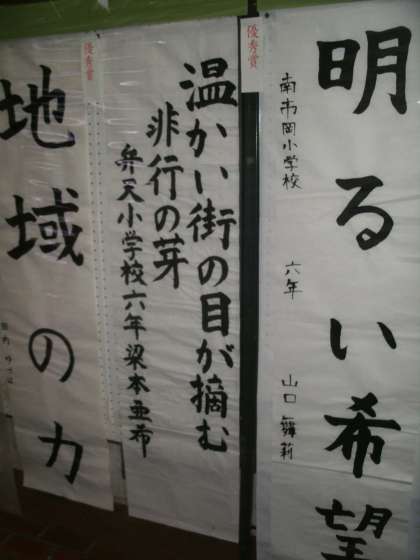 明るい希望
南市岡小学校 六年 山口 舞莉
優秀賞
温かい街の目が摘む
非行の芽
弁天小学校六年梁本亜希
優秀賞
地域の力